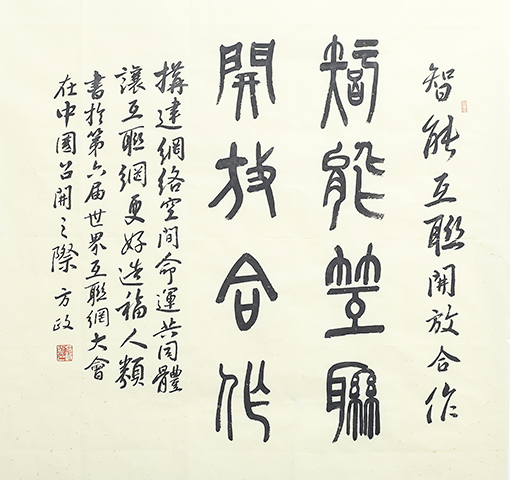 智能互聯開放合作
智能互聯
開放合作
構建網絡空間命運共同體
讓互聯網更好造福人類
書於第六届世界互聯網大會
在中國召開之際 方政